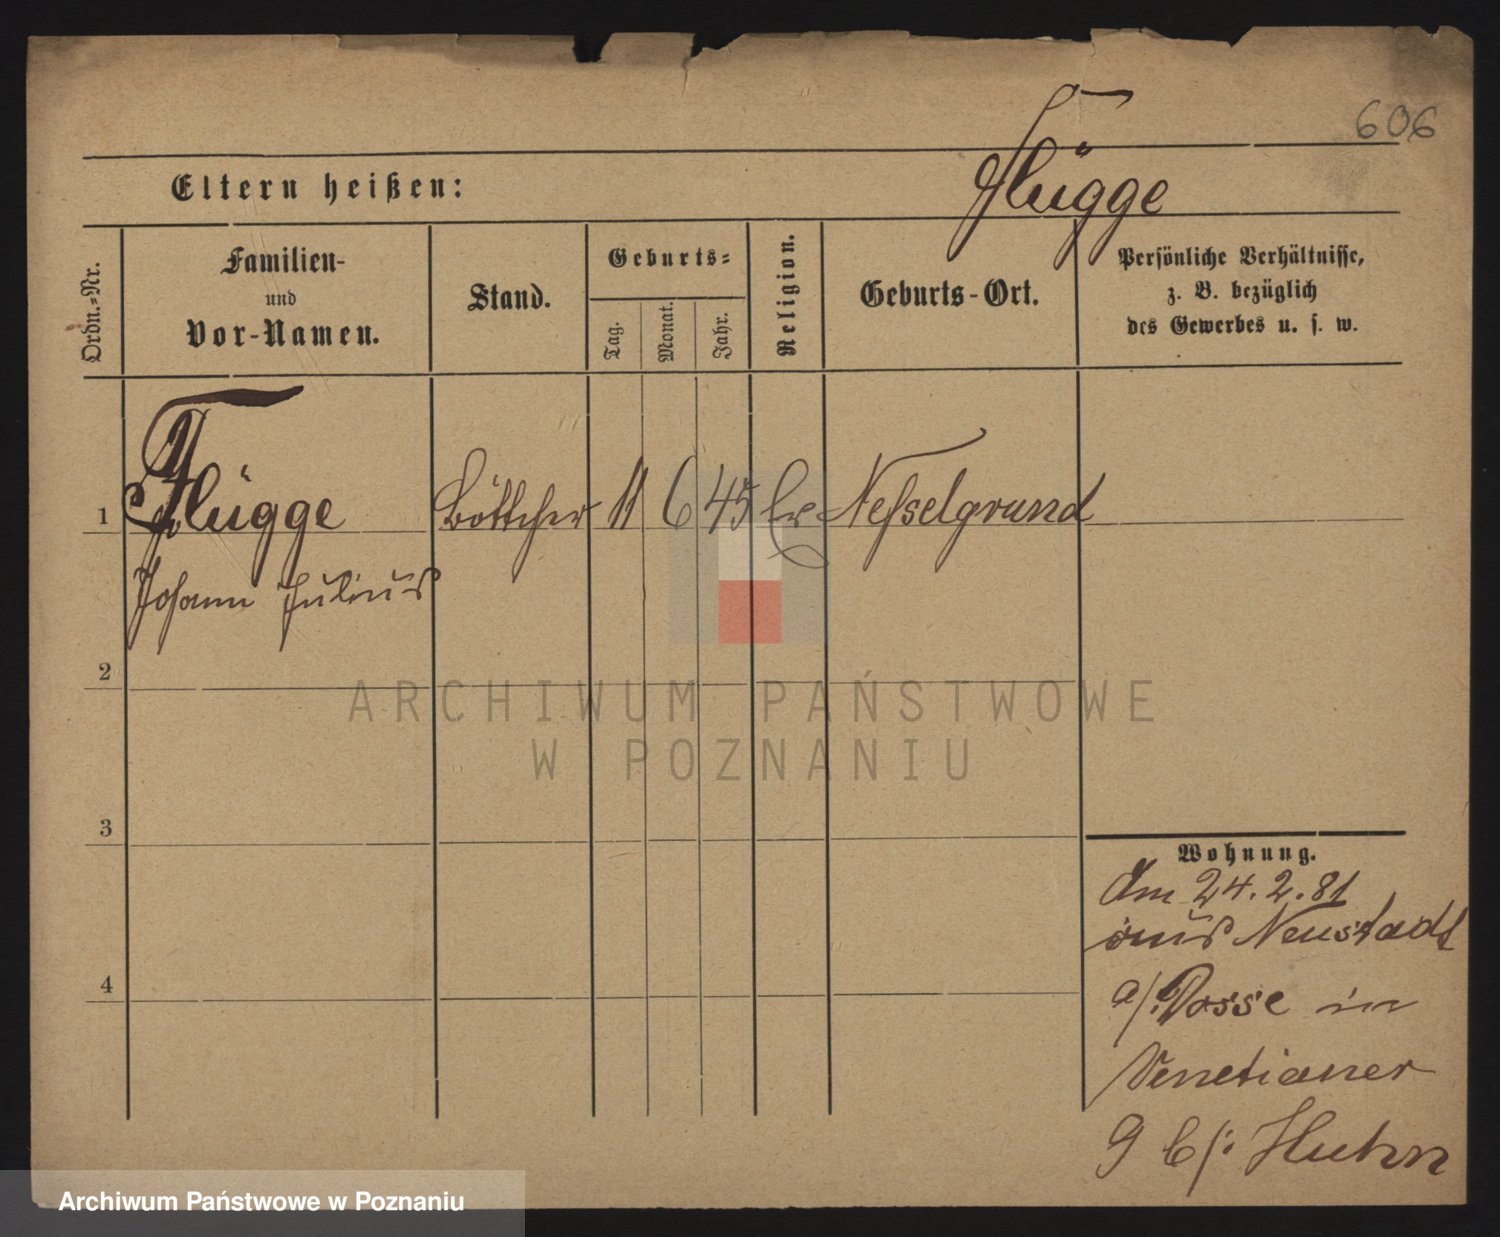 606
Flügge
Eltern heißen:
Ordn.-Nr.
Familien-
und
Vor-Namen.
Stand.
Geburts-
Tag.
Monat.
Jahr.
Religion.
Geburts-Ort.
Persönliche Verhältnisse,
z. B. bezüglich
des Gewerbes u. s. w.
1 Flügge Böttcher 11 6 45 Ev Nesselgrund
Johann Julius
2
3
4
Wohnung.
Am 24.2.81
aus Neustadt
a/: Dosse in
Venetianer
9 b/: Huhn
ARCHIWUM PAŃSTWOWE
W POZNANIU
Archiwum Państwowe w Poznaniu